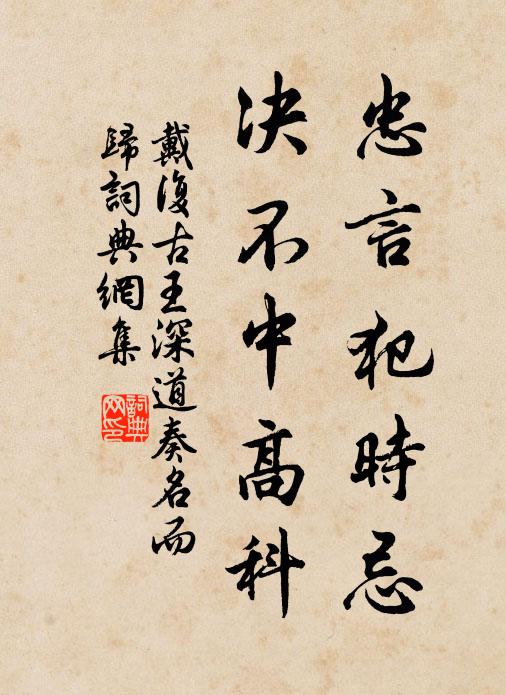 忠言犯時忌
決不中高科
戴復古王深道奏名而
歸詞典網集
詞典网印